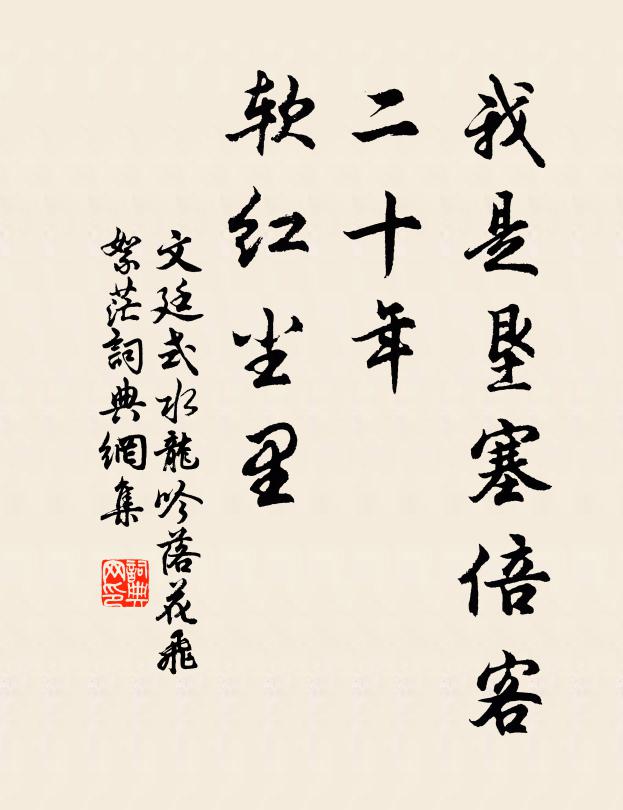 我是垦塞倍客
二十年
软红尘里
文廷式水龍吟落花飛
絮茫詞典網集
詞典
网印